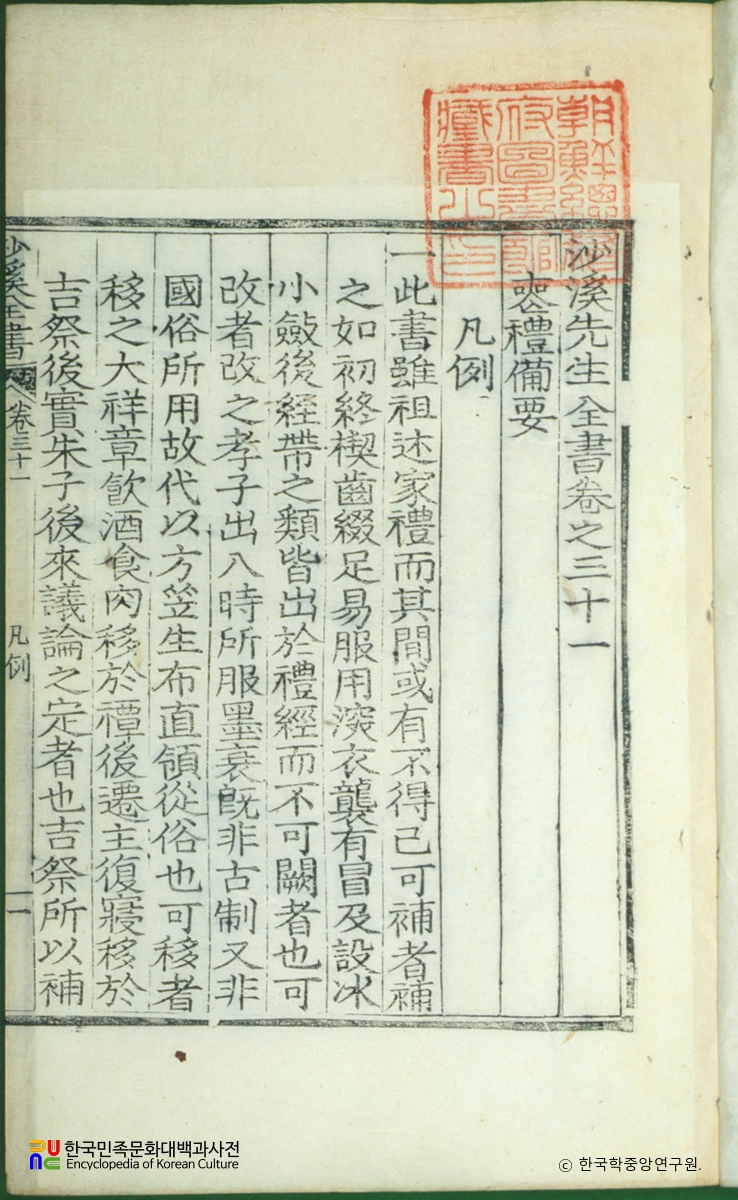 沙溪先生全書卷之三十一
喪禮備要
凡例
一此書雖祖述家禮而其間或有不得已可補者補
之如初終楔齒綴足易服用深衣襲有冒及設冰
小斂後絰帶之類皆出於禮經而不可闕者也可
改者改之孝子出入時所服墨衰旣非古制又非
國俗所用故代以方笠生布直領從俗也可移者
移之大祥章飮酒食肉移於禫後遷主復寢移於
吉祭後實朱子後來議論之定者也吉祭所以補
沙溪全書 卷三十一 凡例 一
朝鮮總督府圖書館藏書之印
한국민족문화대백과사전
Encyclopedia of Korean Culture
ⓒ 한국학중앙연구원.